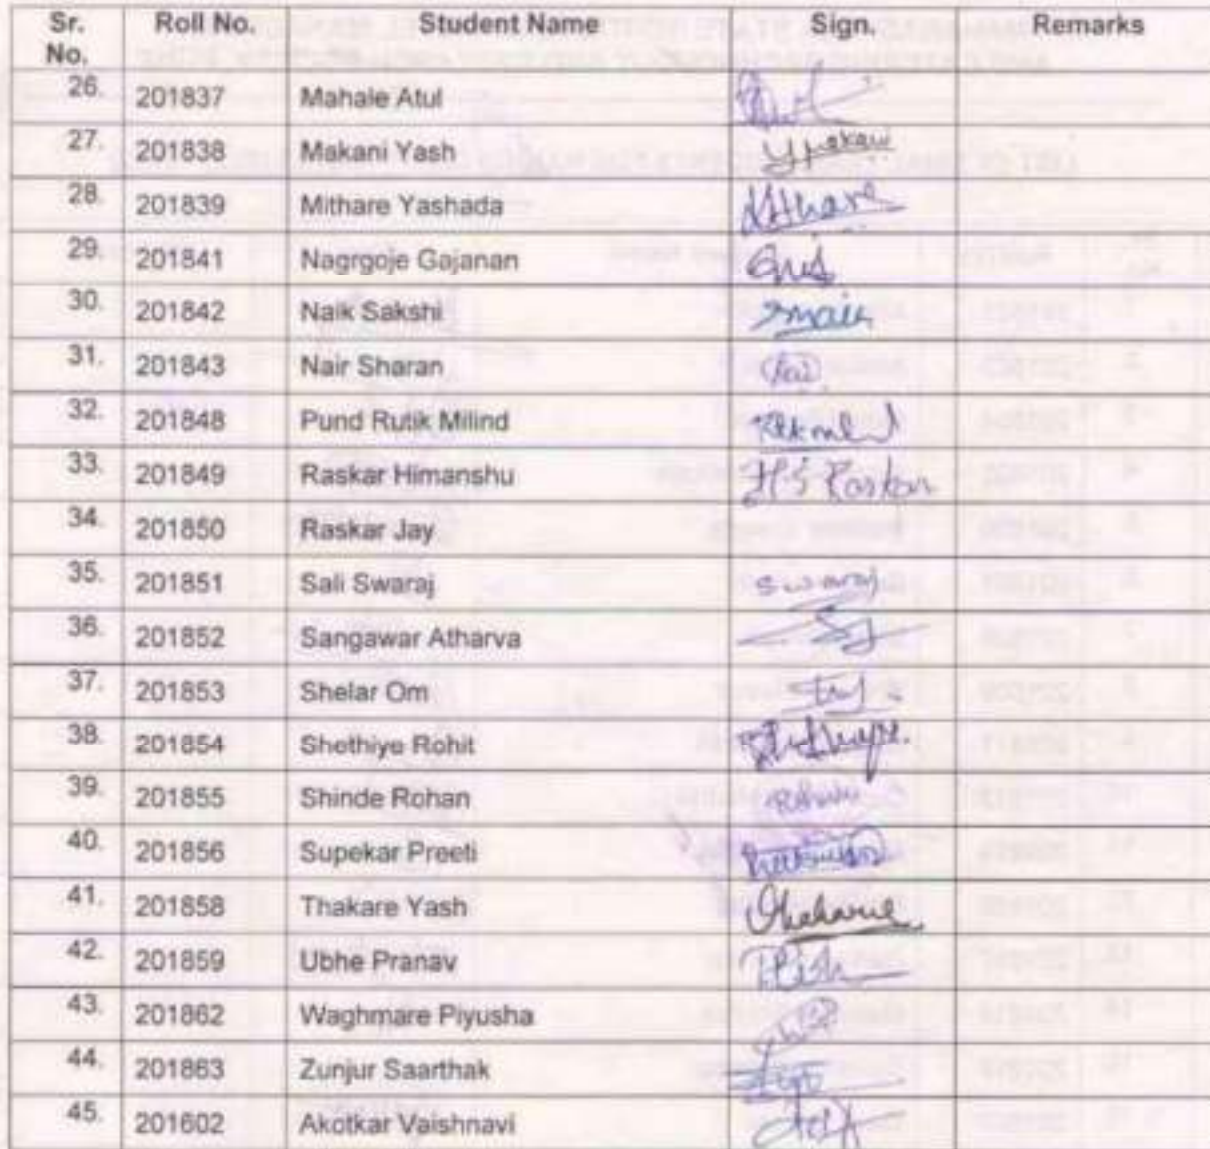 Sr. No. Roll No. Student Name Sign. Remarks
26. 201837 Mahale Atul
27. 201838 Makani Yash
28. 201839 Mithare Yashada
29. 201841 Nagrgoje Gajanan
30. 201842 Naik Sakshi
31. 201843 Nair Sharan
32. 201848 Pund Rutik Milind
33. 201849 Raskar Himanshu H S Raskar
34. 201850 Raskar Jay
35. 201851 Sali Swaraj Swaraj
36. 201852 Sangawar Atharva
37. 201853 Shelar Om
38. 201854 Shethiye Rohit
39. 201855 Shinde Rohan
40. 201856 Supekar Preeti
41. 201858 Thakare Yash
42. 201859 Ubhe Pranav
43. 201862 Waghmare Piyusha
44. 201863 Zunjur Saarthak
45. 201602 Akotkar Vaishnavi